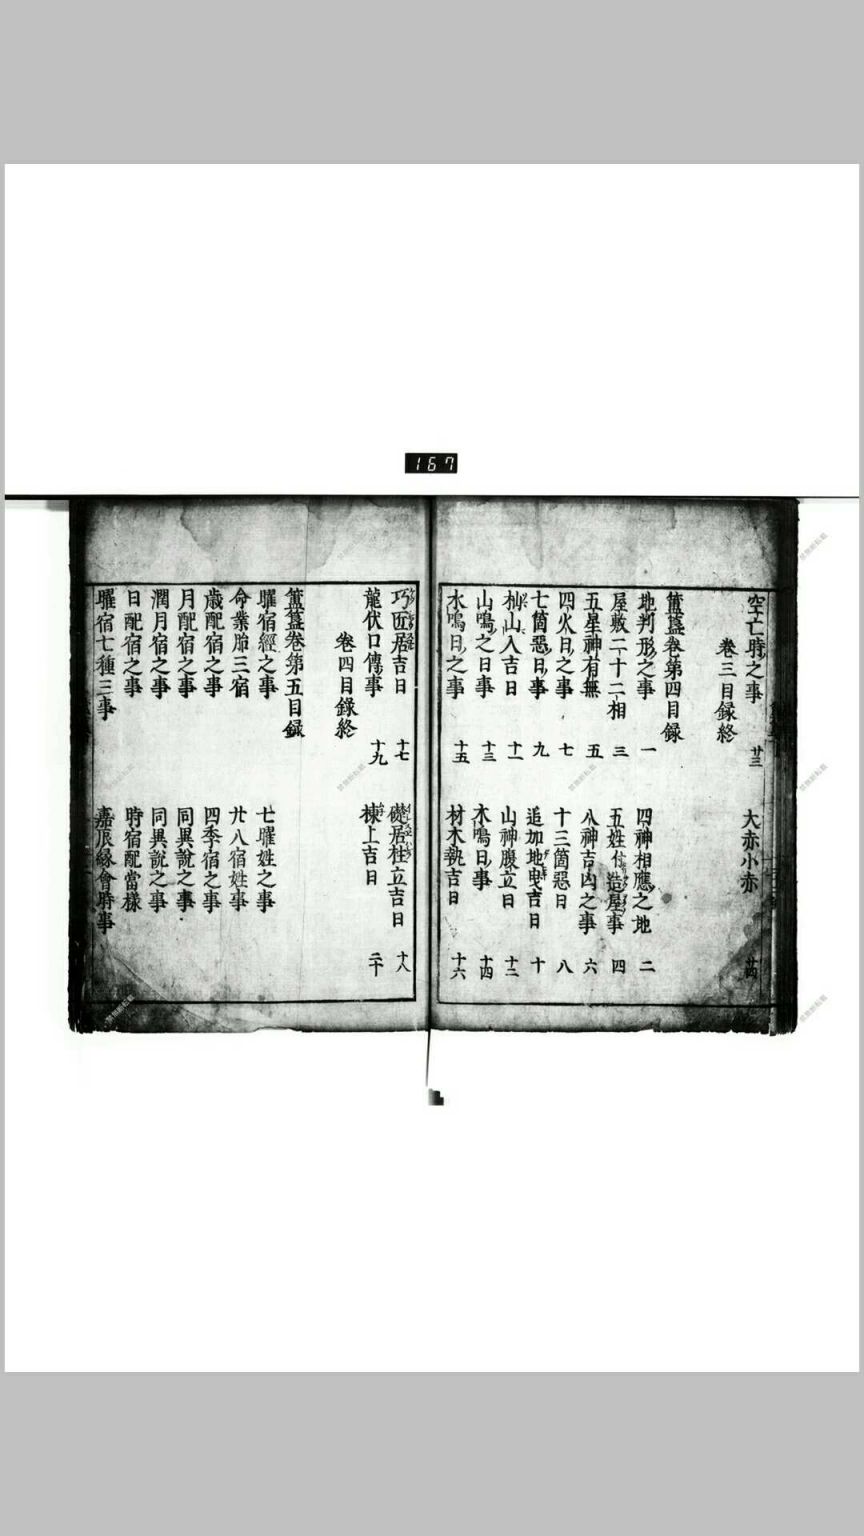 167
空亡時之事 廿三 大赤小赤 廿四
卷三目録終
簠簋卷第四目録
地判形之事 一 四神相應之地 二
屋敷二十二相 三 五姓付造屋事 四
五星神有無 五 八神吉凶之事 六
四火日之事 七 十三箇惡日 八
七箇惡日事 九 追加地曳吉日 十
杣山入吉日 十一 山神腹立日 十二
山鳴之日事 十三 木鳴日事 十四
水鳴日之事 十五 材木執吉日 十六
巧匠居吉日 十七 礎居柱立吉日 十八
龍伏口傳事 十九 棟上吉日 二十
卷四目録終
簠簋卷第五目録
曜宿經之事 七曜姓之事
命業胎三宿 廿八宿姓事
歳配宿之事 四季宿之事
月配宿之事 同異說之事
潤月宿之事 同異說之事
日配宿之事 時宿配當樣
曜宿七種三事 嘉辰縁會時事
禁無断転載
禁無断転載
禁無断転載
禁無断転載
禁無断転載
禁無断転載
禁無断転載
禁無断転載
禁無断転載